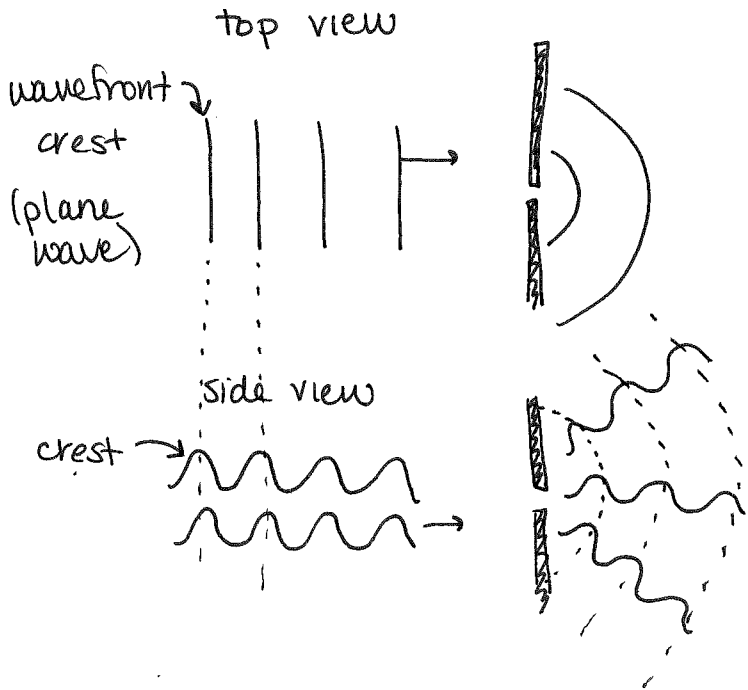 top view
wavefront
crest
(plane
wave)
side view
crest